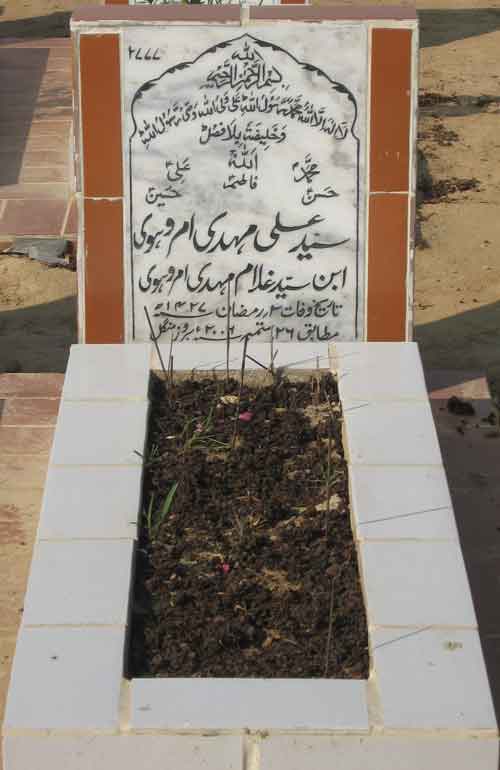 ۲۷۷۷
الله
بسم الله الرحمن الرحیم
لا اله الا الله محمد رسول الله علی ولی الله وصی رسول الله
وخلیفتہ بلا فصل
محمدؐ الله علیؑ
حسنؑ فاطمہؑ حسینؑ
سید علی مہدی امروہوی
ابن سید غلام مہدی امروہوی
تاریخ وفات ۲ رمضان ۱۴۲۷ھ
مطابق ۲۶ ستمبر ۲۰۰۶ء بروز منگل